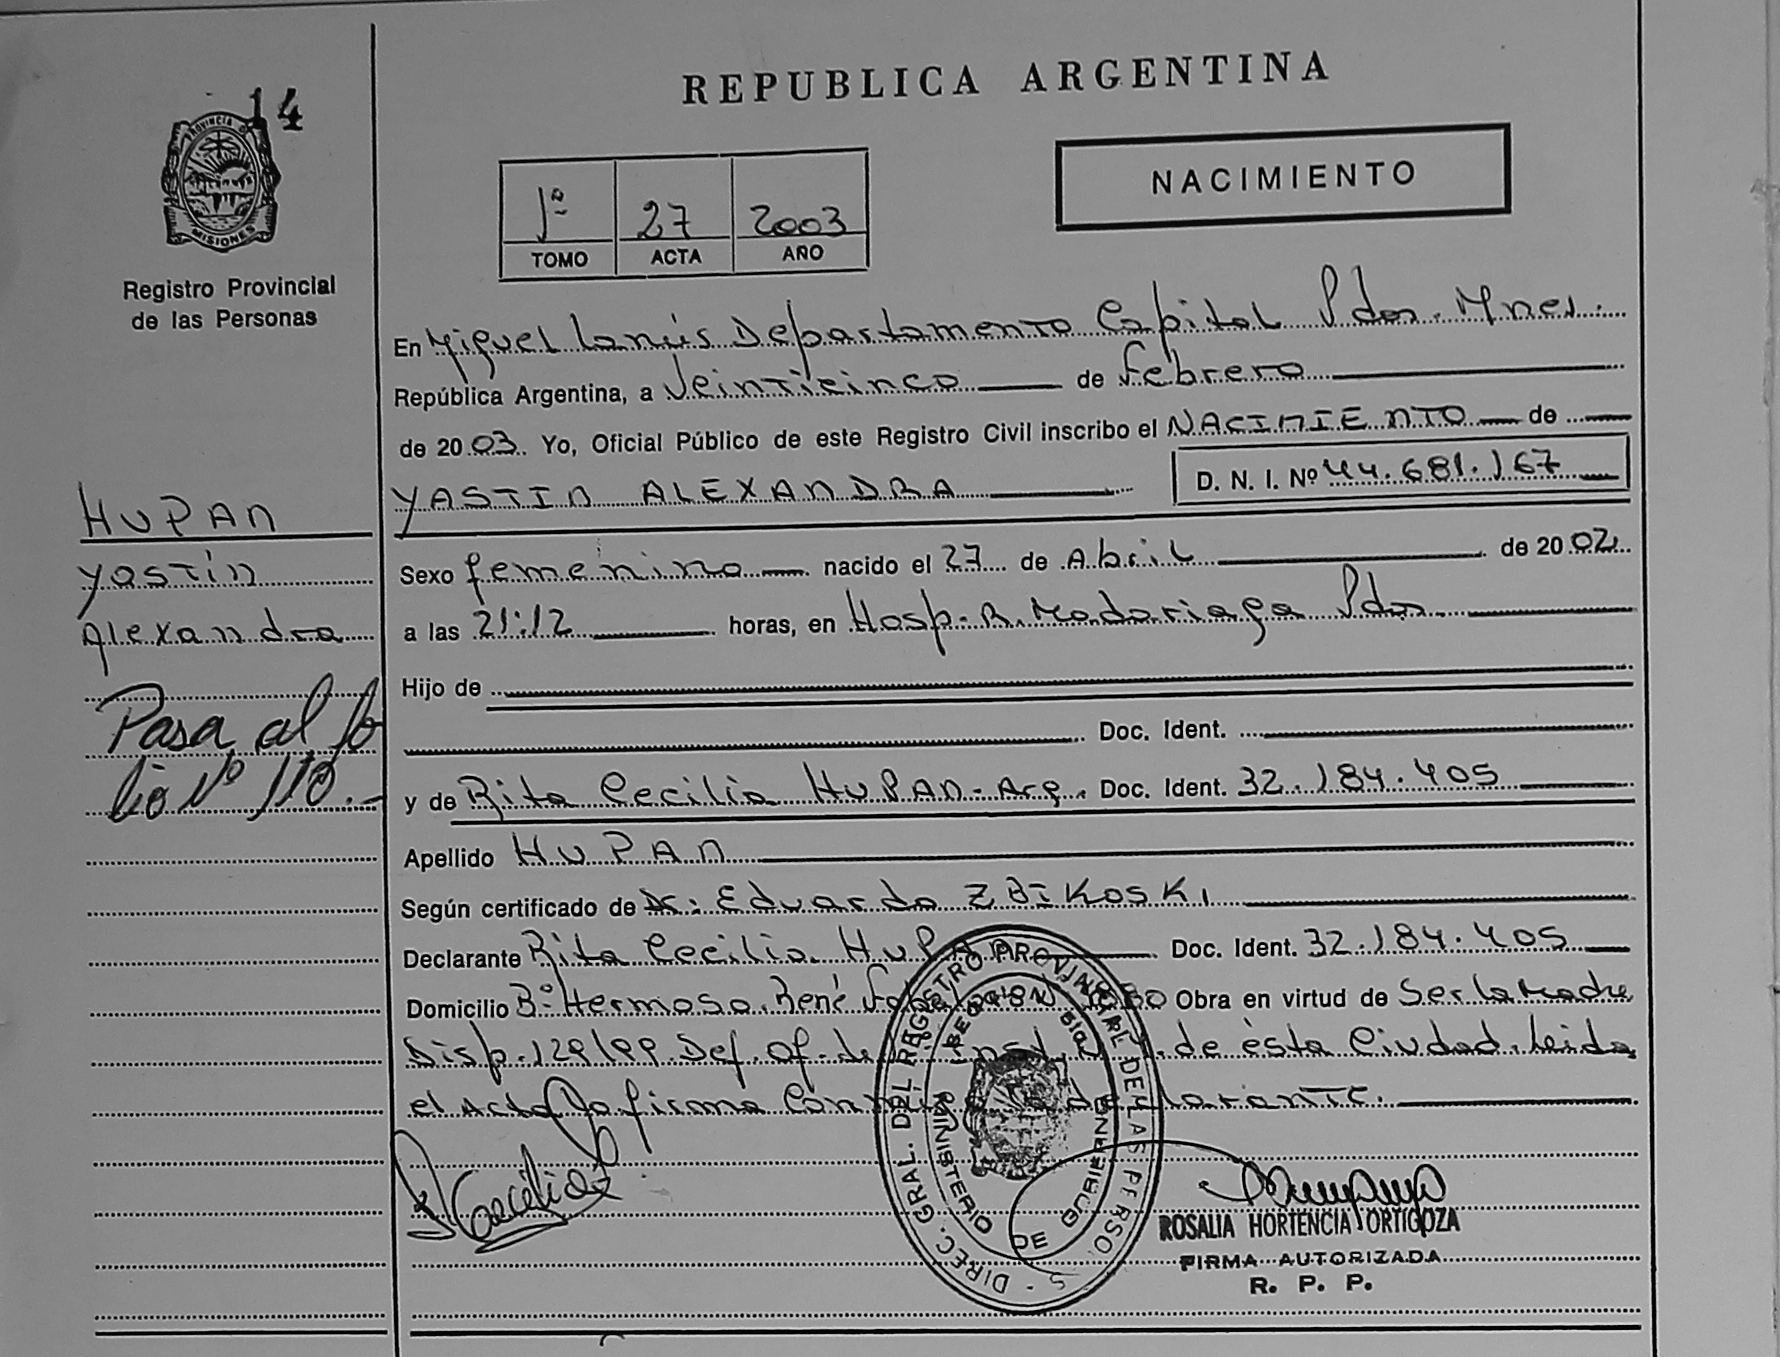 14
REPUBLICA ARGENTINA
PROVINCIA DE
MISIONES
Registro Provincial
de las Personas
NACIMIENTO
1º 27 2003
TOMO ACTA AÑO
En Miguel Lanús Departamento Capital Pdas. Mnes.
República Argentina, a Veinticinco de febrero
de 2003. Yo, Oficial Público de este Registro Civil inscribo el NACIMIENTO de
YASTIN ALEXANDRA D. N. I. Nº 44.681.167
HUPAN
Yastin
Alexandra
Pasa al fo
lio Nº 110.-
Sexo femenino nacido el 27 de Abril de 2002
a las 21:12 horas, en Hosp. R. Madariaga Pdas
Hijo de
Doc. Ident.
y de Rita Cecilia HUPAN - Arg. Doc. Ident. 32.184.405
Apellido HUPAN
Según certificado de Dr: Eduardo ZBIKOSKI
Declarante Rita Cecilia HUPAN Doc. Ident. 32.184.405
Domicilio Bº Hermoso. René Obra en virtud de Ser la Madre
Disp. 129/99 Def. Of. de de ésta Ciudad. Leida
el Acta la firma Con
Cecilia
DIREC. GRAL. DEL REGISTRO PROVINCIAL DE LAS PERSONAS
MINISTERIO DE GOBIERNO
ROSALIA HORTENCIA ORTIGOZA
FIRMA AUTORIZADA
R. P. P.